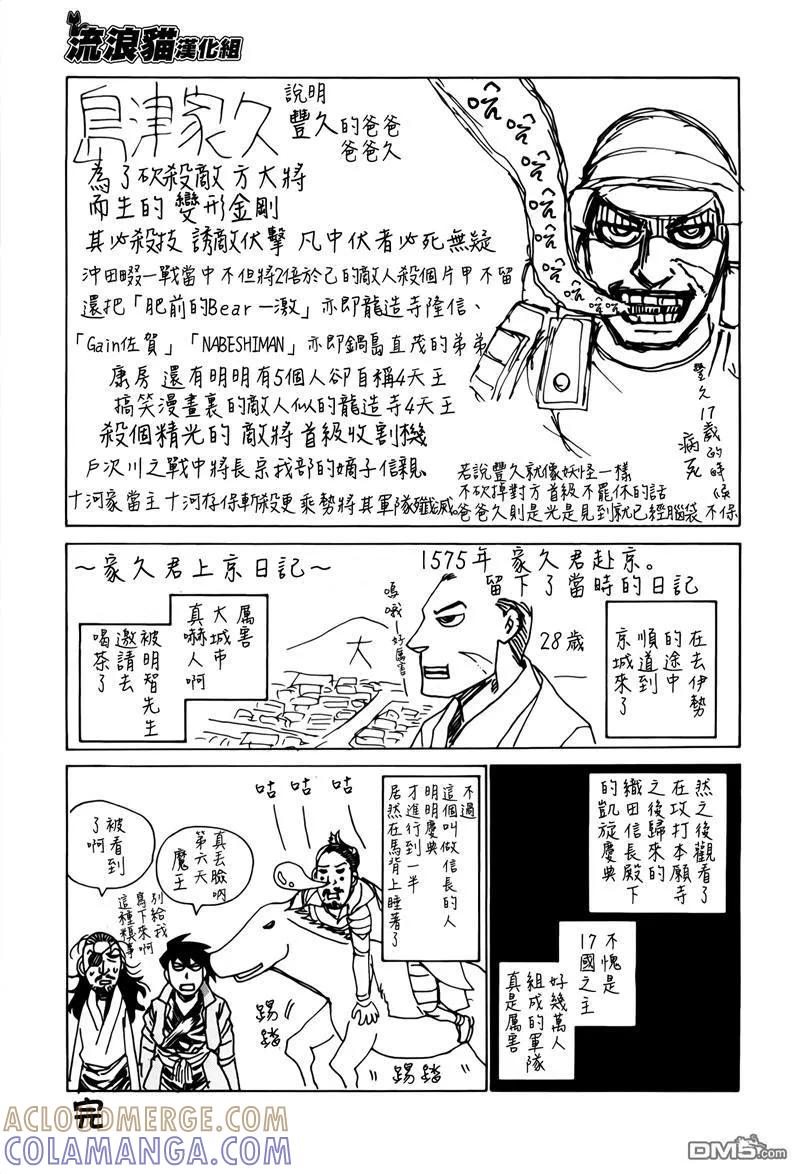 流浪貓漢化組
島津家久
說明
豐久的爸爸
爸爸久
為了砍殺敵方大將
而生的變形金剛
其必殺技 誘敵伏擊 凡中伏者必死無疑
沖田畷一戰當中不但將2倍於己的敵人殺個片甲不留
還把「肥前的Bear一激」亦即龍造寺隆信、
「Gain佐賀」「NABESHIMAN」亦即鍋島直茂的弟弟
康房 還有明明有5個人卻自稱4天王
搞笑漫畫裏的敵人似的龍造寺4天王
殺個精光的 敵將首級收割機
戶次川之戰中將長宗我部的嫡子信親、
十河家當主 十河存保斬殺更乘勢將其軍隊殲滅。
哈 哈 哈 哈 哈 哈 哈
豐久17歲的時候
病死
若說豐久就像妖怪一樣
不砍掉對方首級不罷休的話
爸爸久則是光是見到就已經腦袋不保
～家久君上京日記～
1575年 家久君赴京。
留下了當時的日記
在去伊勢
的途中
順道到
京城來了
28歲
嗚哦——好厲害——
大
厲害
大城市
真嚇人啊
被明智先生
邀請去
喝茶了
然之後觀看了
在攻打本願寺
之後歸來的
織田信長殿下
的凱旋慶典
不愧是
17國之主
好幾萬人
組成的軍隊
真是厲害
不過
這個叫做信長的人
明明慶典
才進行到一半
居然在馬背上睡著了
咕 咕 咕
踢踏
踢踏
真丟臉吶
第六天
魔王
被看到
了啊
別給我
寫下來啊
這種糗事
完
ACLOUDMERGE.COM
COLAMANGA.COM
DM5.com